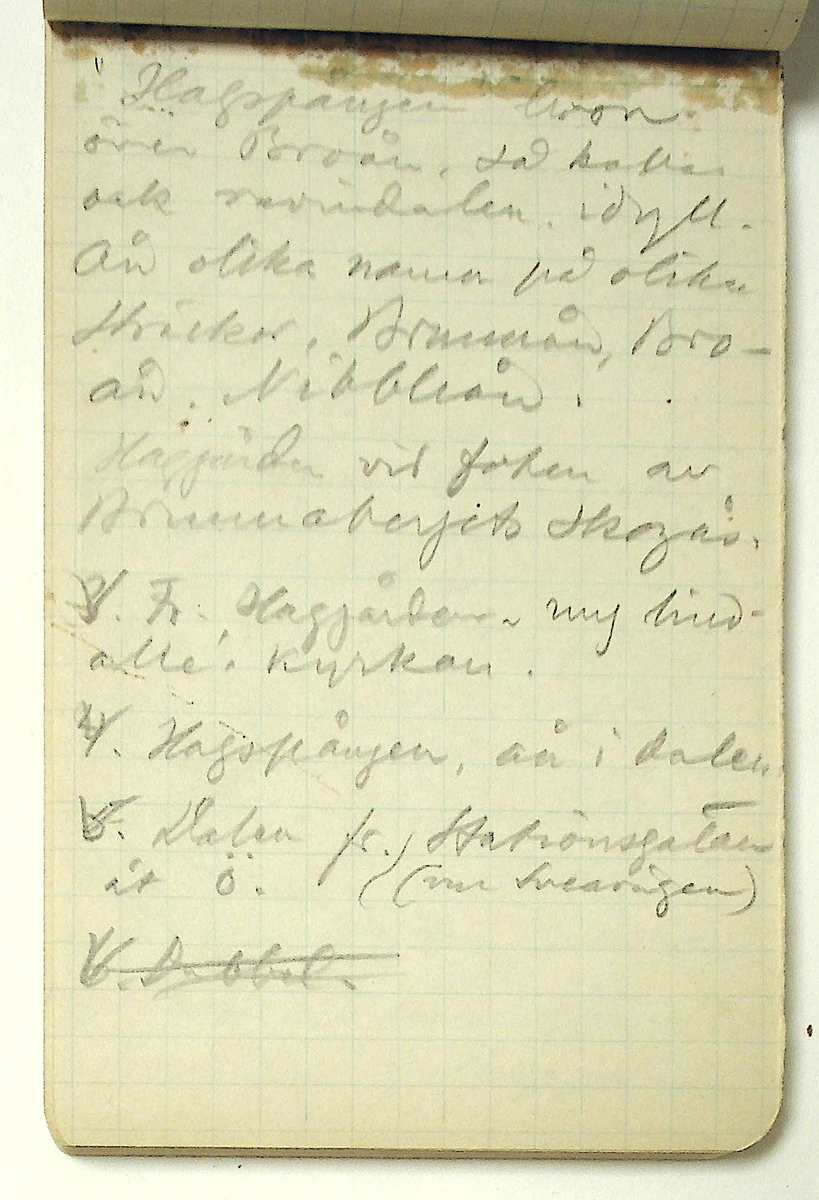 "Hagspången" bron
över Broån, så kallas
ock ravindalen. idyll.
Ån olika namn på olika
sträckor, Brunnsån, Bro-
ån, Nibbleån.
Haggården vid foten av
Brunnabergets skogås.
3. Fr. Haggården, ung lind-
allé, kyrkan.
4. Hagspången, ån i dalen.
5. Dalen fr. Stationsgatan
åt ö. (nu Sveavägen)
6. Dubbel.